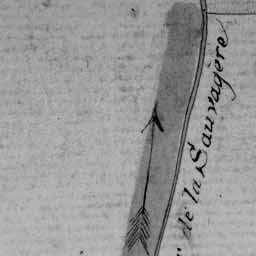 de la Sauvagère